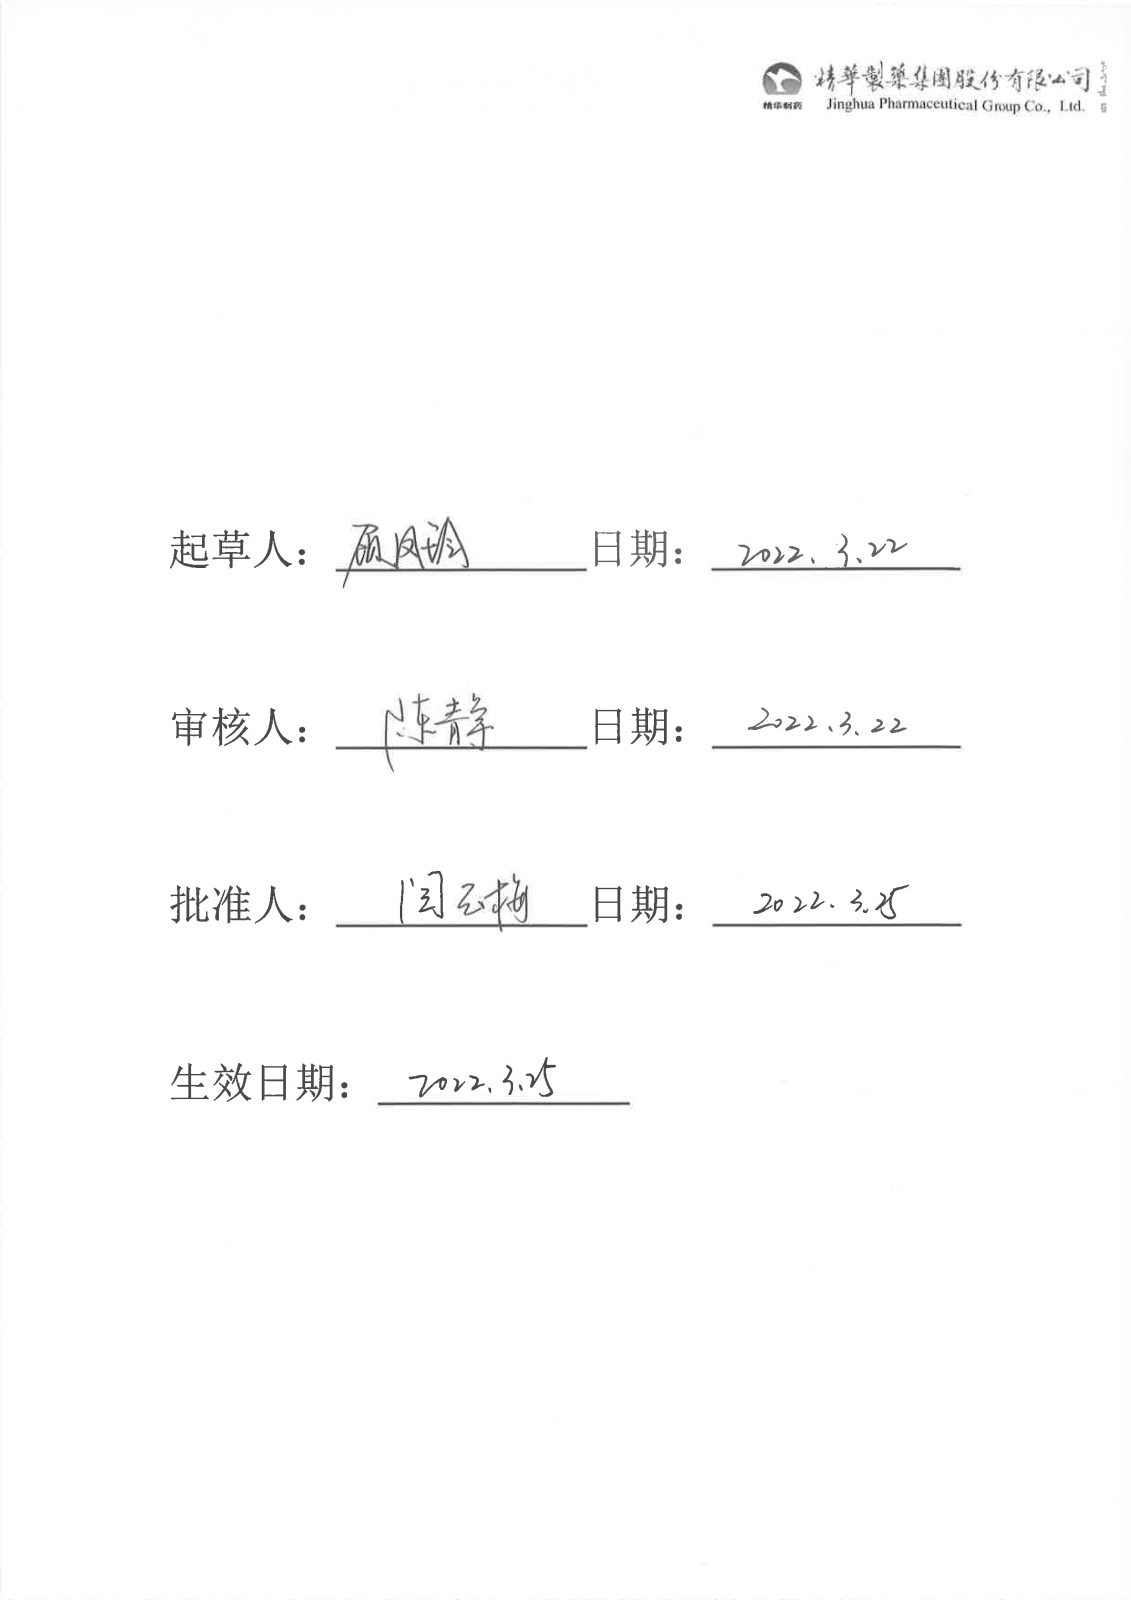 精華製藥集團股份有限公司
精华制药
Jinghua Pharmaceutical Group Co., Ltd.
起草人： 顾凤 日期： 2022.3.22
审核人： 陈静 日期： 2022.3.22
批准人： 闫玉梅 日期： 2022.3.25
生效日期： 2022.3.25